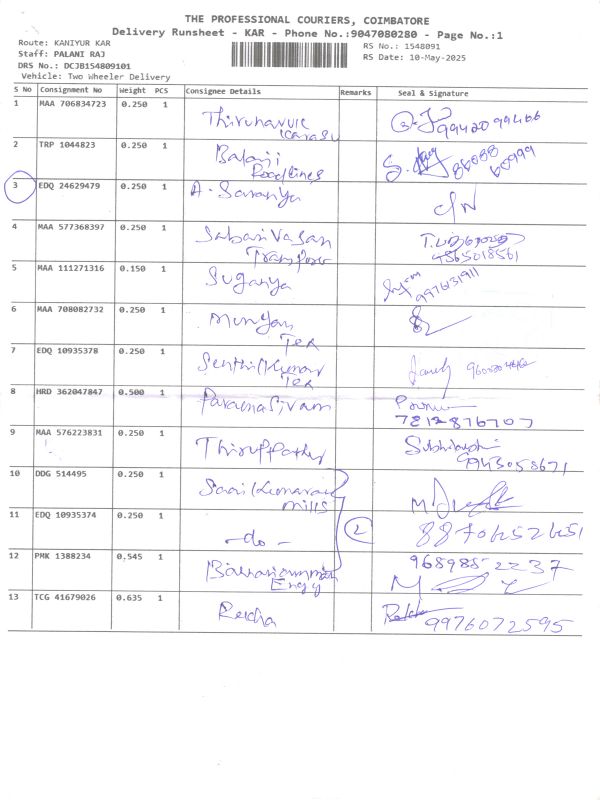 THE PROFESSIONAL COURIERS, COIMBATORE
Delivery Runsheet - KAR - Phone No.:9047080280 - Page No.:1
Route: KANIYUR KAR
Staff: PALANI RAJ
DRS No.: DCJB154809101
Vehicle: Two Wheeler Delivery
RS No.: 1548091
RS Date: 10-May-2025
S No Consignment No Weight PCS Consignee Details Remarks Seal & Signature
1 MAA 706834723 0.250 1 Thirunavuk
karasu 9942099466
2 TRP 1044823 0.250 1 Balaji
Roadlines
3 EDQ 24629479 0.250 1 A. Saranya
4 MAA 577368397 0.250 1 Sabari Vasan
4565018561
5 MAA 111271316 0.150 1 Suganya
6 MAA 708082732 0.250 1 Murugan
Tex
7 EDQ 10935378 0.250 1 Senthil Kumar
Tex
8 HRD 362047847 0.500 1 Paramasivam
9 MAA 576223831 0.250 1 Thiruppathy
9943058671
10 DDG 514495 0.250 1
mills
11 EDQ 10935374 0.250 1 - do - 2
12 PMK 1388234 0.545 1
13 TCG 41679026 0.635 1 Rekha 9976072595